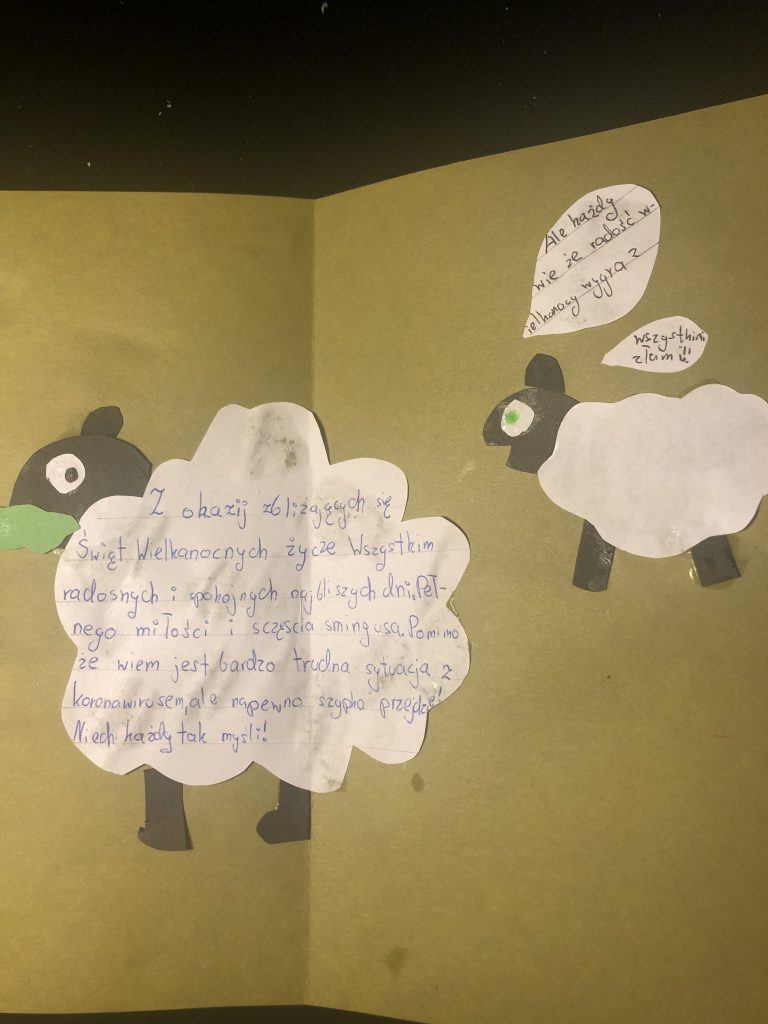 Z okazij zbliżających się
Świąt Wielkanocnych życze Wszystkim
radosnych i spokojnych najbliszych dni. Peł-
nego miłości i sczęścia smingusa. Pomimo
że wiem jest bardzo trudna sytuacja z
koronawirusem, ale napewno szypko przejdzie!
Niech każdy tak myśli!
Ale każdy
wie że radość w-
ielkanocy wygra z
wszystkim
złam!!!